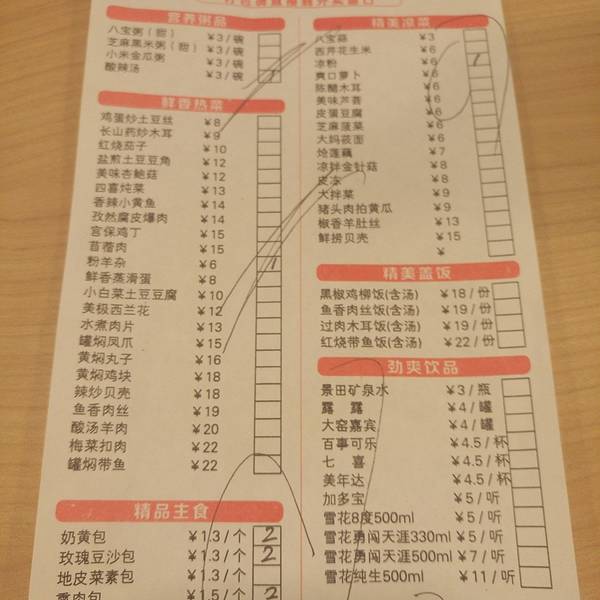 营养粥品
八宝粥（甜） ￥3/碗
芝麻黑米粥（甜） ￥3/碗
小米金瓜粥 ￥3/碗
酸辣汤 ￥3/碗 1
鲜香热菜
鸡蛋炒土豆丝 ￥8
长山药炒木耳 ￥9
红烧茄子 ￥10
盐煎土豆豆角 ￥12
美味杏鲍菇 ￥12
四喜炖菜 ￥13
香辣小黄鱼 ￥14
孜然腐皮爆肉 ￥14
宫保鸡丁 ￥15
苜蓿肉 ￥15
粉羊杂 ￥6 1
鲜香蒸滑蛋 ￥8
小白菜土豆豆腐 ￥10
美极西兰花 ￥12
水煮肉片 ￥13
罐焖凤爪 ￥15
黄焖丸子 ￥16
黄焖鸡块 ￥18
辣炒贝壳 ￥18
鱼香肉丝 ￥19
酸汤羊肉 ￥20
梅菜扣肉 ￥22
罐焖带鱼 ￥22
精品主食
奶黄包 ￥1.3/个 2
玫瑰豆沙包 ￥1.3/个 2
地皮菜素包 ￥1.3/个
肉包 ￥1.5/个 2
精美凉菜
八宝菇 ￥3
西芹花生米 ￥6
凉粉 ￥6 1
爽口萝卜 ￥6
陈醋木耳 ￥6
美味芦荟 ￥6
皮蛋豆腐 ￥6
芝麻菠菜 ￥6
大妈莜面 ￥6
炝莲藕 ￥7
凉拌金针菇 ￥8
皮冻 ￥8
大拌菜 ￥9
猪头肉拍黄瓜 ￥9
椒香羊肚丝 ￥13
鲜捞贝壳 ￥15
￥
精美盖饭
黑椒鸡柳饭(含汤) ￥18/份
鱼香肉丝饭(含汤) ￥19/份
过肉木耳饭(含汤) ￥19/份
红烧带鱼饭(含汤) ￥22/份
劲爽饮品
景田矿泉水 ￥3/瓶
露 露 ￥4/罐
大窑嘉宾 ￥4/罐
百事可乐 ￥4.5/杯
七 喜 ￥4.5/杯
美年达 ￥4.5/杯
加多宝 ￥5/听
雪花8度500ml ￥5/听
雪花勇闯天涯330ml ￥5/听
雪花勇闯天涯500ml ￥7/听
雪花纯生500ml ￥11/听